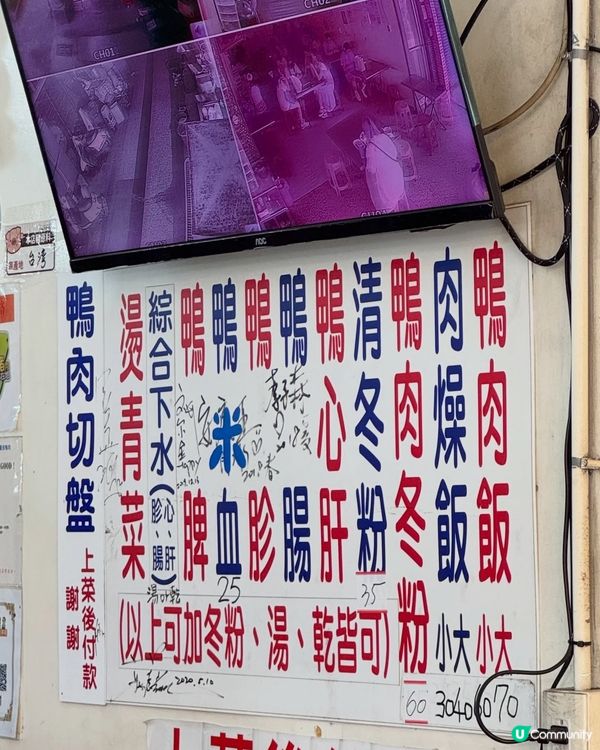 CH01
CH02
AOC
本店鴨原料
原產地
台灣
鴨肉飯
小大
6070
肉燥飯
小大
3040
鴨肉冬粉
60
清冬粉
35
鴨心肝
鴨腸
鴨胗
鴨米血
25
鴨脾
綜合下水(心、肝胗、腸)
湯or乾
燙青菜
(以上可加冬粉、湯、乾皆可)
鴨肉切盤
上菜後付款
謝謝
2020.5.10
上菜後
U Community